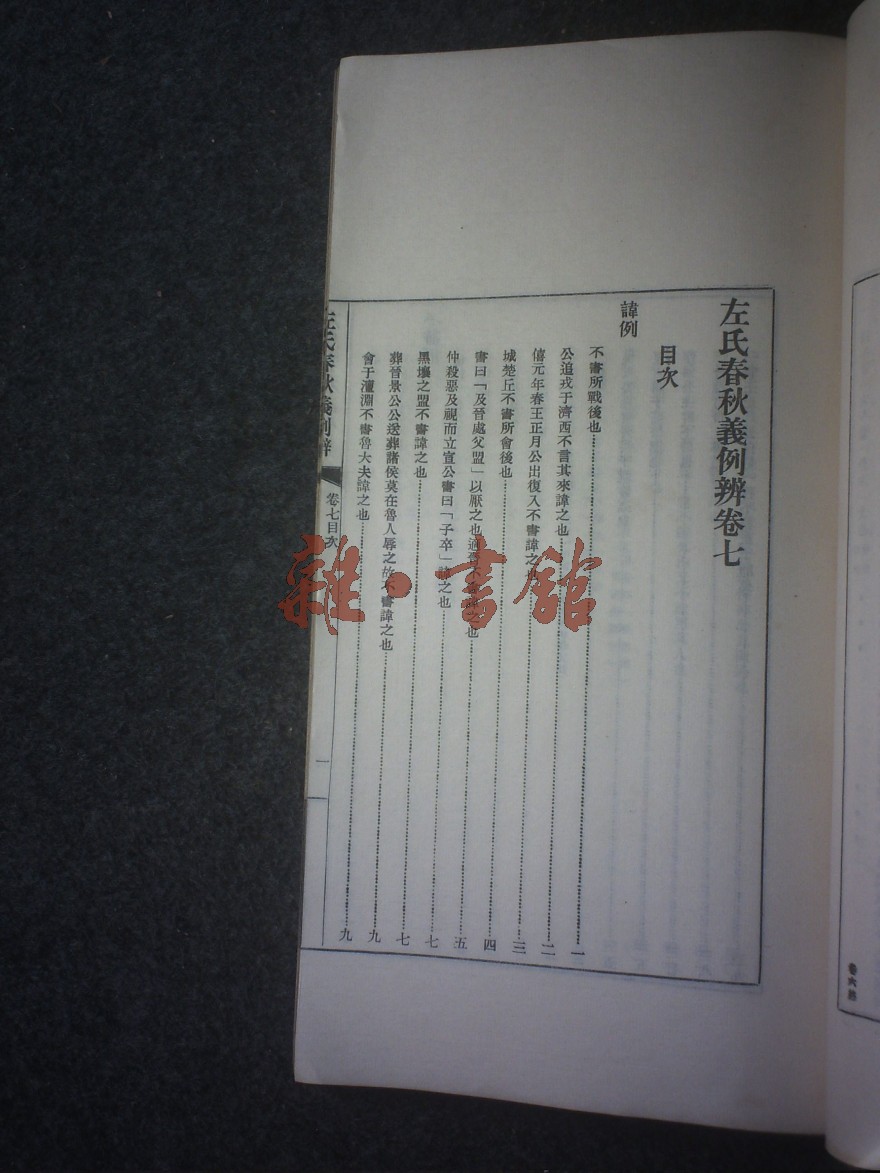 左氏春秋義例辨卷七
目次
諱例
不書所戰後也……一
公追戎于濟西不言其來諱之也……二
僖元年春王正月公出復入不書諱之也……三
城楚丘不書所會後也……四
書曰「及晉處父盟」以厭之也適晉不書諱之也……五
仲殺惡及視而立宣公書曰「子卒」諱之也……七
黑壤之盟不書諱之也……七
葬晉景公公送葬諸侯莫在魯人辱之故不書諱之也……九
會于澶淵不書魯大夫諱之也……九
左氏春秋義例辨
卷七目次
一
卷六終
雜·書館